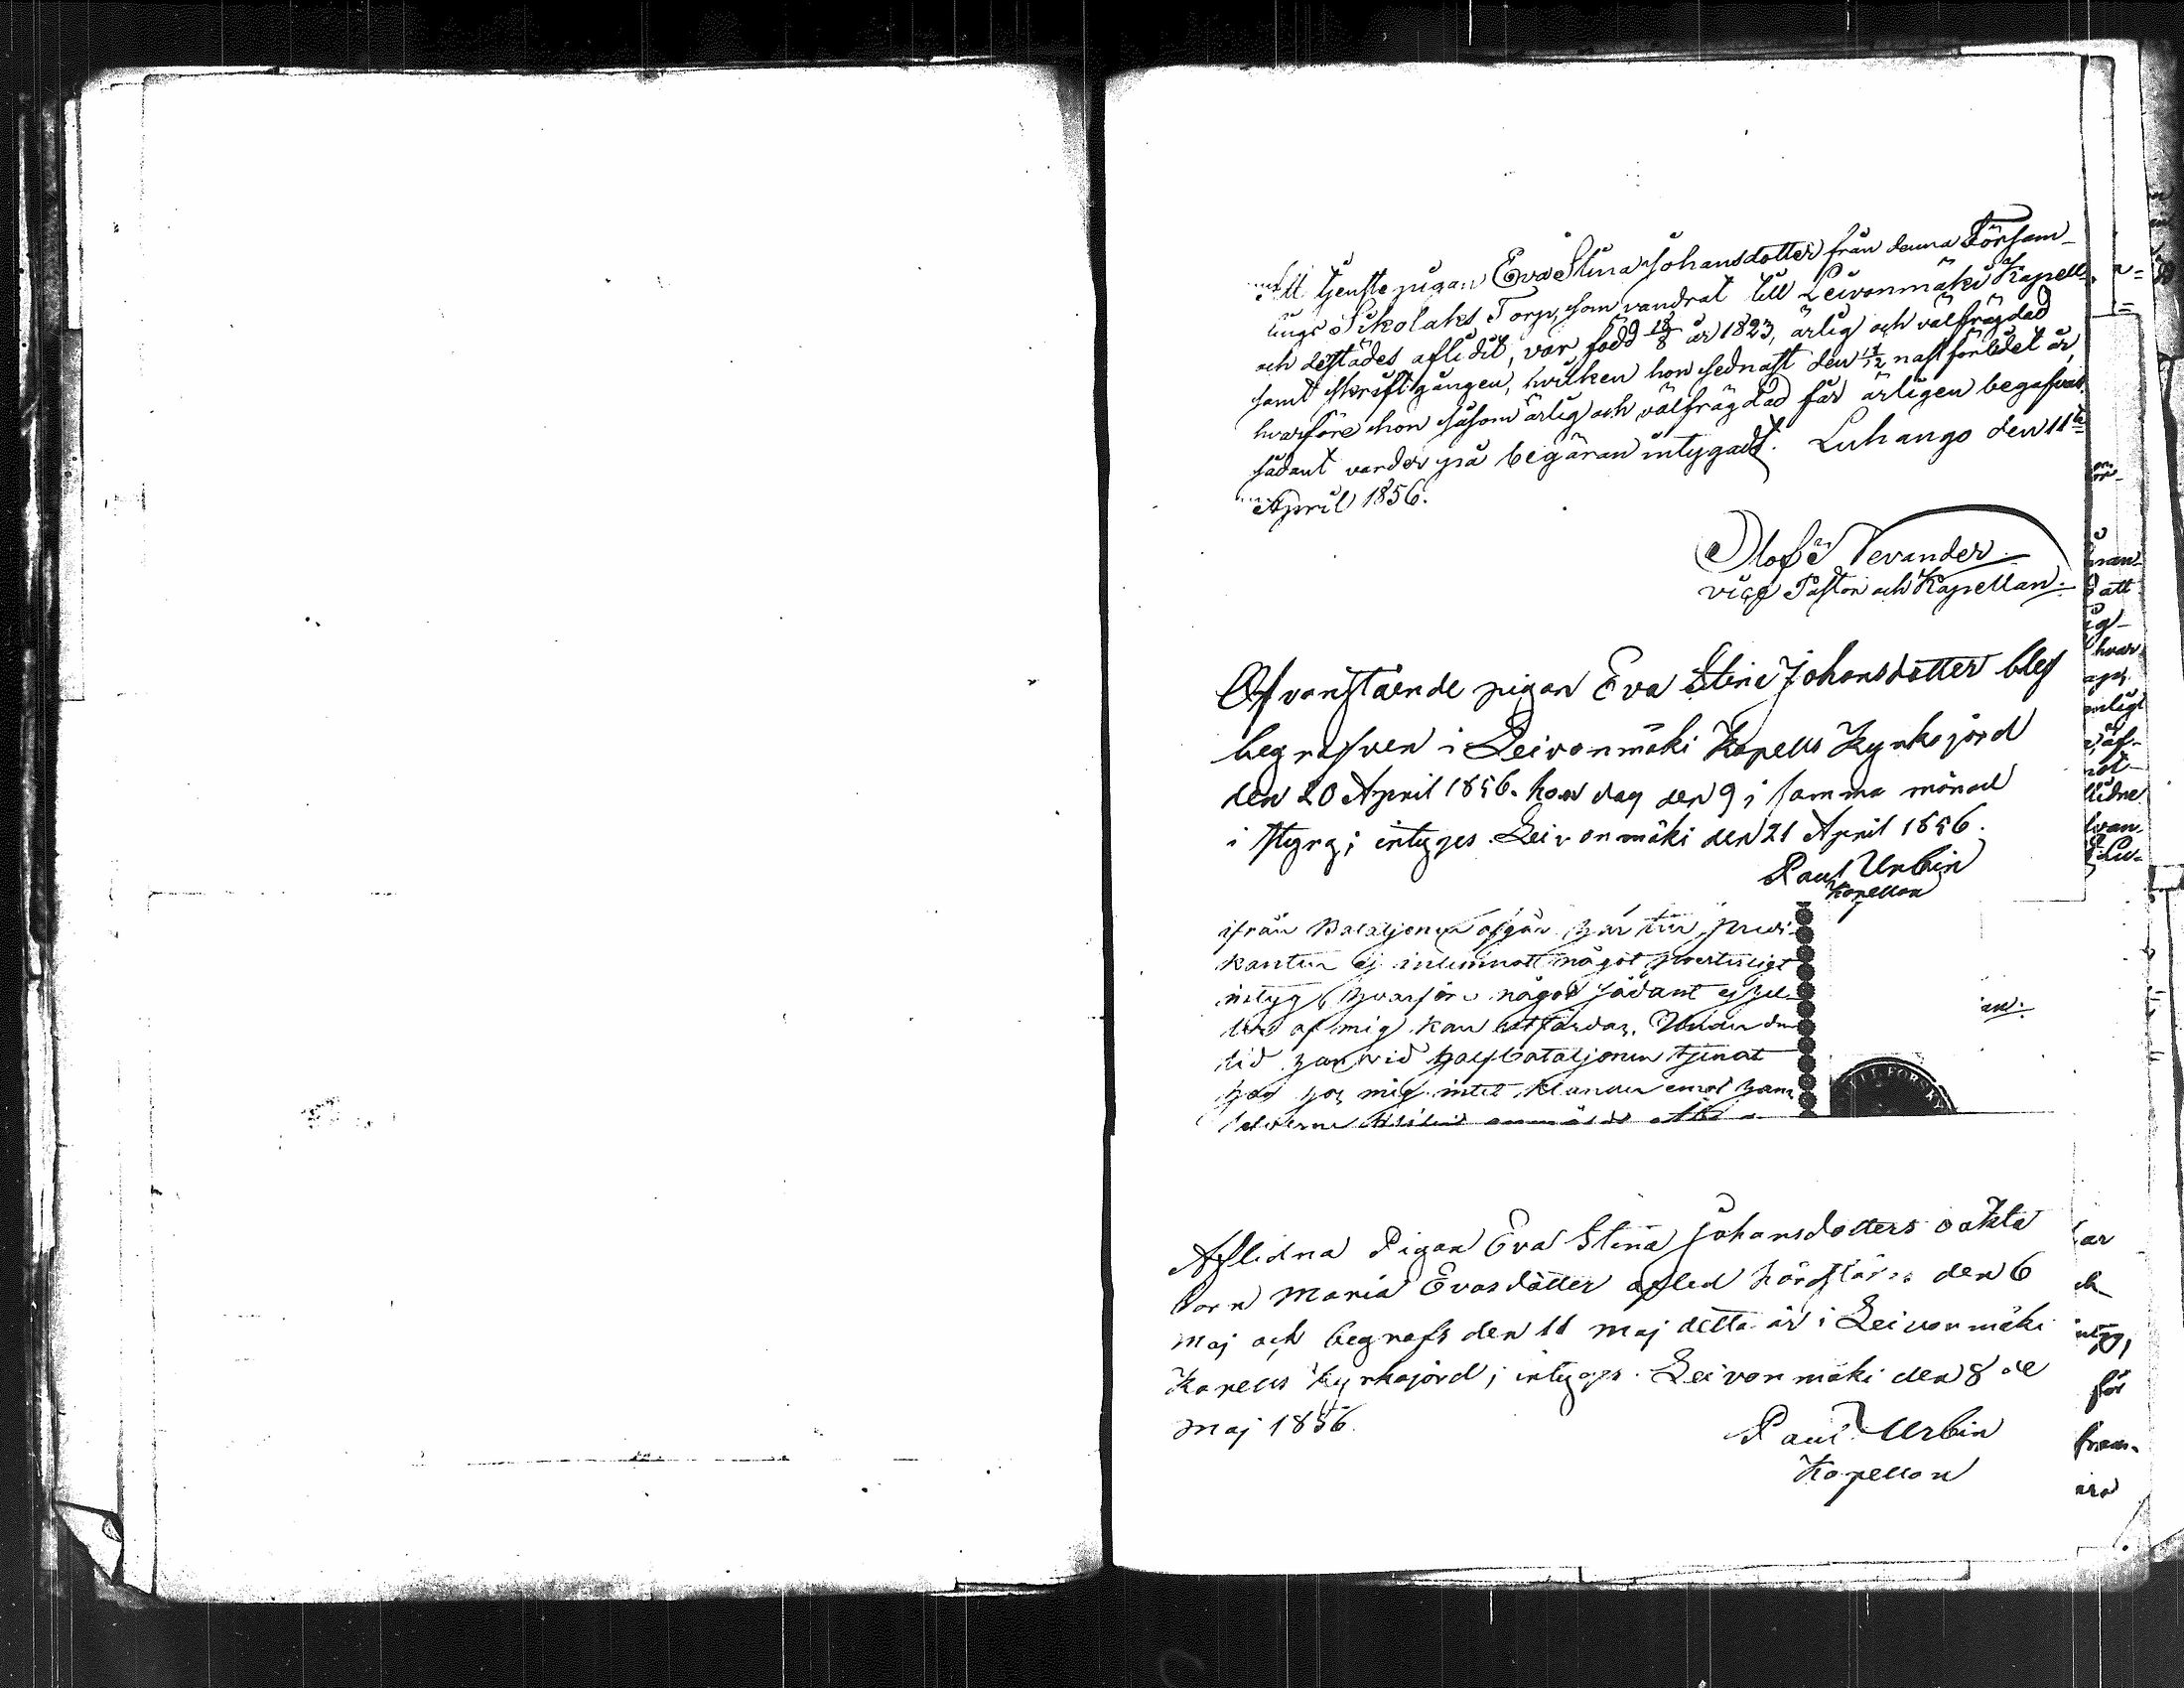 Att tjenstepigan Eva Stina Johansdotter från denna Församlings Sikolaks Torp, som vandrat till Leivonmäki Kapell
och destädes aflidit, var född 18/8 år 1823, ärlig och välfrägdad
samt skriftgången, hvilken hon sednast den 11/12 nästförlidet år,
hvarföre hon såsom ärlig och välfrägdad får ärligen begrafvas,
sådant varder på begäran intygadt. Luhango den 11te
April 1856.
Olof Nevander
vice Pastor och Kapellan.
Ofvanstående pigan Eva Stina Johansdotter blef
begrafven i Leivonmäki Kapells Kyrkojord
den 20 April 1856. hon dog den 9 i samma månad
i styng; intygas. Leivonmäki den 21 April 1856.
Paul Urbin
Kapellan
ifrån Bataljonen afgån har
kanten ej inlemnatt något
intyg, hvarföre något sådant ej hel-
ler af mig kan utfärdas. Under den
tid han vid halfbataljonen tjenat
har hos mig intet klander emot hans
Aflidna Pigan Eva Stina Johansdotters oäkta
barn Maria Evasdotter afled härstädes den 6
Maj och begrafs den 11 Maj detta år i Leivonmäki
Kapells Kyrkojord; intygas. Leivonmäki den 8de
Maj 1856.
Paul Urbin
Kapellan
att
hvar
för